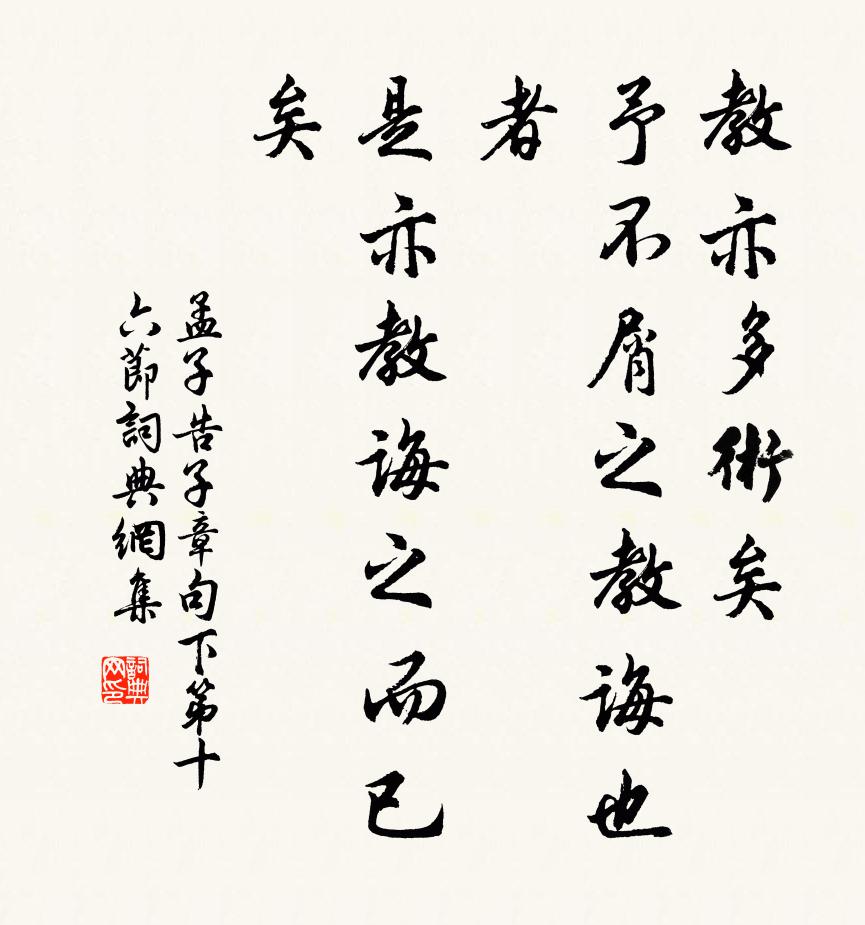 教亦多術矣
予不屑之教誨也
者
是亦教誨之而已
矣
孟子告子章句下第十
六節詞典網集
詞典
网印